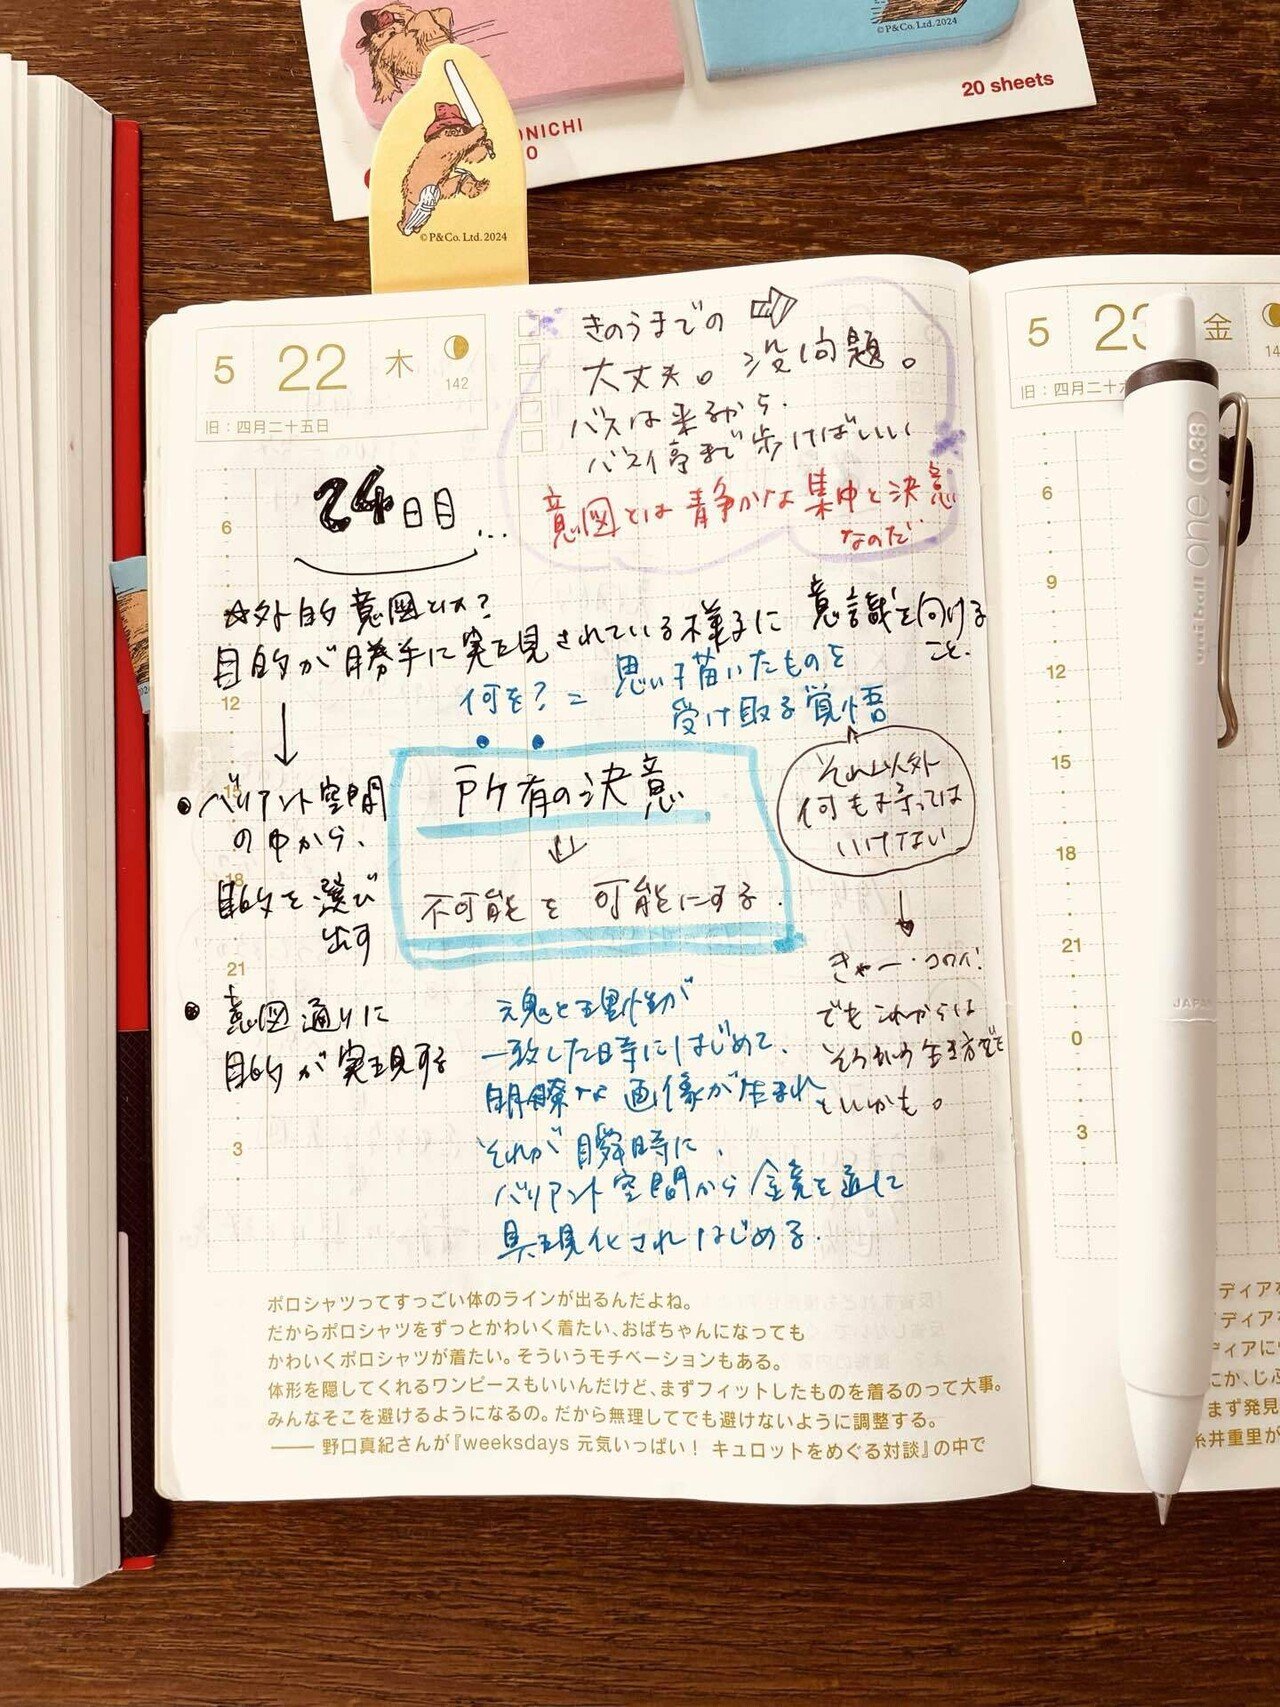 20 sheets
©P&Co. Ltd. 2024
ONICHI
©P&Co. Ltd. 2024
5 22 木
142
旧：四月二十五日
きのうまでの
大丈夫。没問題。
バスは来るから.
バス停まで歩けばいい
意図とは静かな集中と決意
なのだ
24日目...
☆外的意図とは?
目的が勝手に実現されている様子に意識を向ける
こと.
何を? = 思い描いたものを
受け取る覚悟
それ以外
何も持っては
いけない
きゃー・コワイ!
でもこれからは
そういう生き方でも
いいかも。
所有の決意
不可能を可能にする.
・バリアント空間
の中から、
目的を選び
出す
・意図通りに
目的が実現する
魂と理性が
一致した時にはじめて、
明瞭な画像が生まれ
それが瞬時に、
バリアント空間から鏡を通して
具現化されはじめる.
6
12
15
18
21
0
3
ポロシャツってすっごい体のラインが出るんだよね。
だからポロシャツをずっとかわいく着たい、おばちゃんになっても
かわいくポロシャツが着たい。そういうモチベーションもある。
体形を隠してくれるワンピースもいいんだけど、まずフィットしたものを着るのって大事。
みんなそこを避けるようになるの。だから無理してでも避けないように調整する。
—— 野口真紀さんが『weeksdays 元気いっぱい！ キュロットをめぐる対談』の中で
5 23 金
旧：四月二十六
6
9
12
15
18
21
0
3
uni-ball one 0.38
JAPAN
ディアを
ディアに
まず発見
糸井重里が